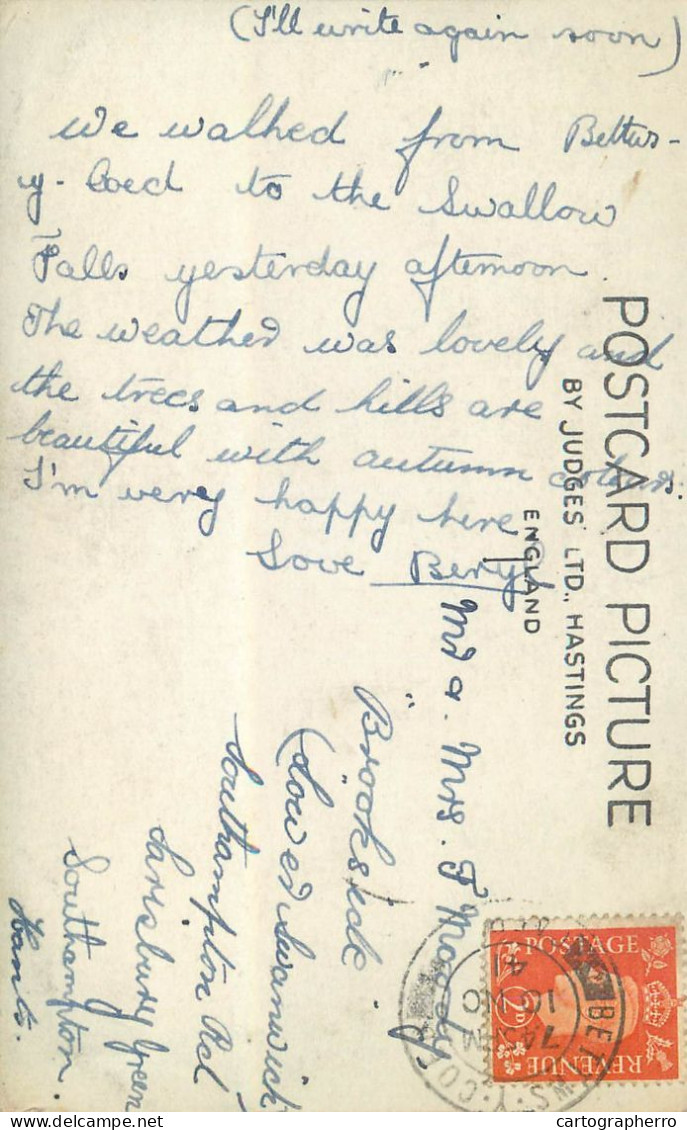 (I'll write again soon)
We walked from Bettws-
y-Coed to the Swallow
Falls yesterday afternoon.
The weather was lovely and
the trees and hills are
beautiful with autumn colours.
I'm very happy here
Love Beryl
POSTCARD PICTURE
BY JUDGES' LTD., HASTINGS
ENGLAND
Mr & Mrs. F Moody
"Brookside"
(Lower Swanwick)
Southampton Rd
Sarisbury Green
Southampton.
Hants.
POSTAGE
2D
REVENUE
BETTWS-Y-COED
7 AM
10 NO
41
cartographerro